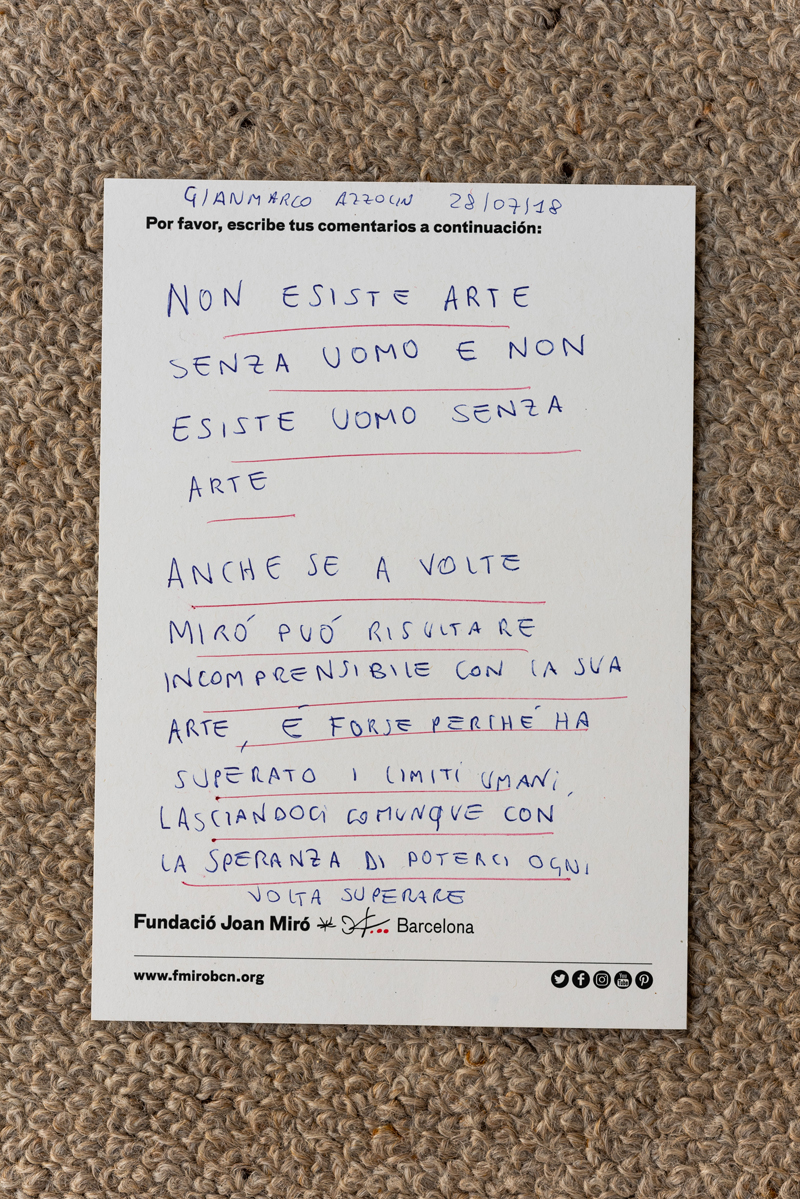 GIANMARCO AZZOLIN 28/07/18
Por favor, escribe tus comentarios a continuación:
NON ESISTE ARTE
SENZA UOMO E NON
ESISTE UOMO SENZA
ARTE
ANCHE SE A VOLTE
MIRÓ PUÓ RISULTARE
INCOMPRENSIBILE CON LA SUA
ARTE, É FORSE PERCHÉ HA
SUPERATO I LIMITI UMANI,
LASCIANDOCI COMUNQUE CON
LA SPERANZA DI POTERCI OGNI
VOLTA SUPERARE
Fundació Joan Miró Barcelona
www.fmirobcn.org
You Tube